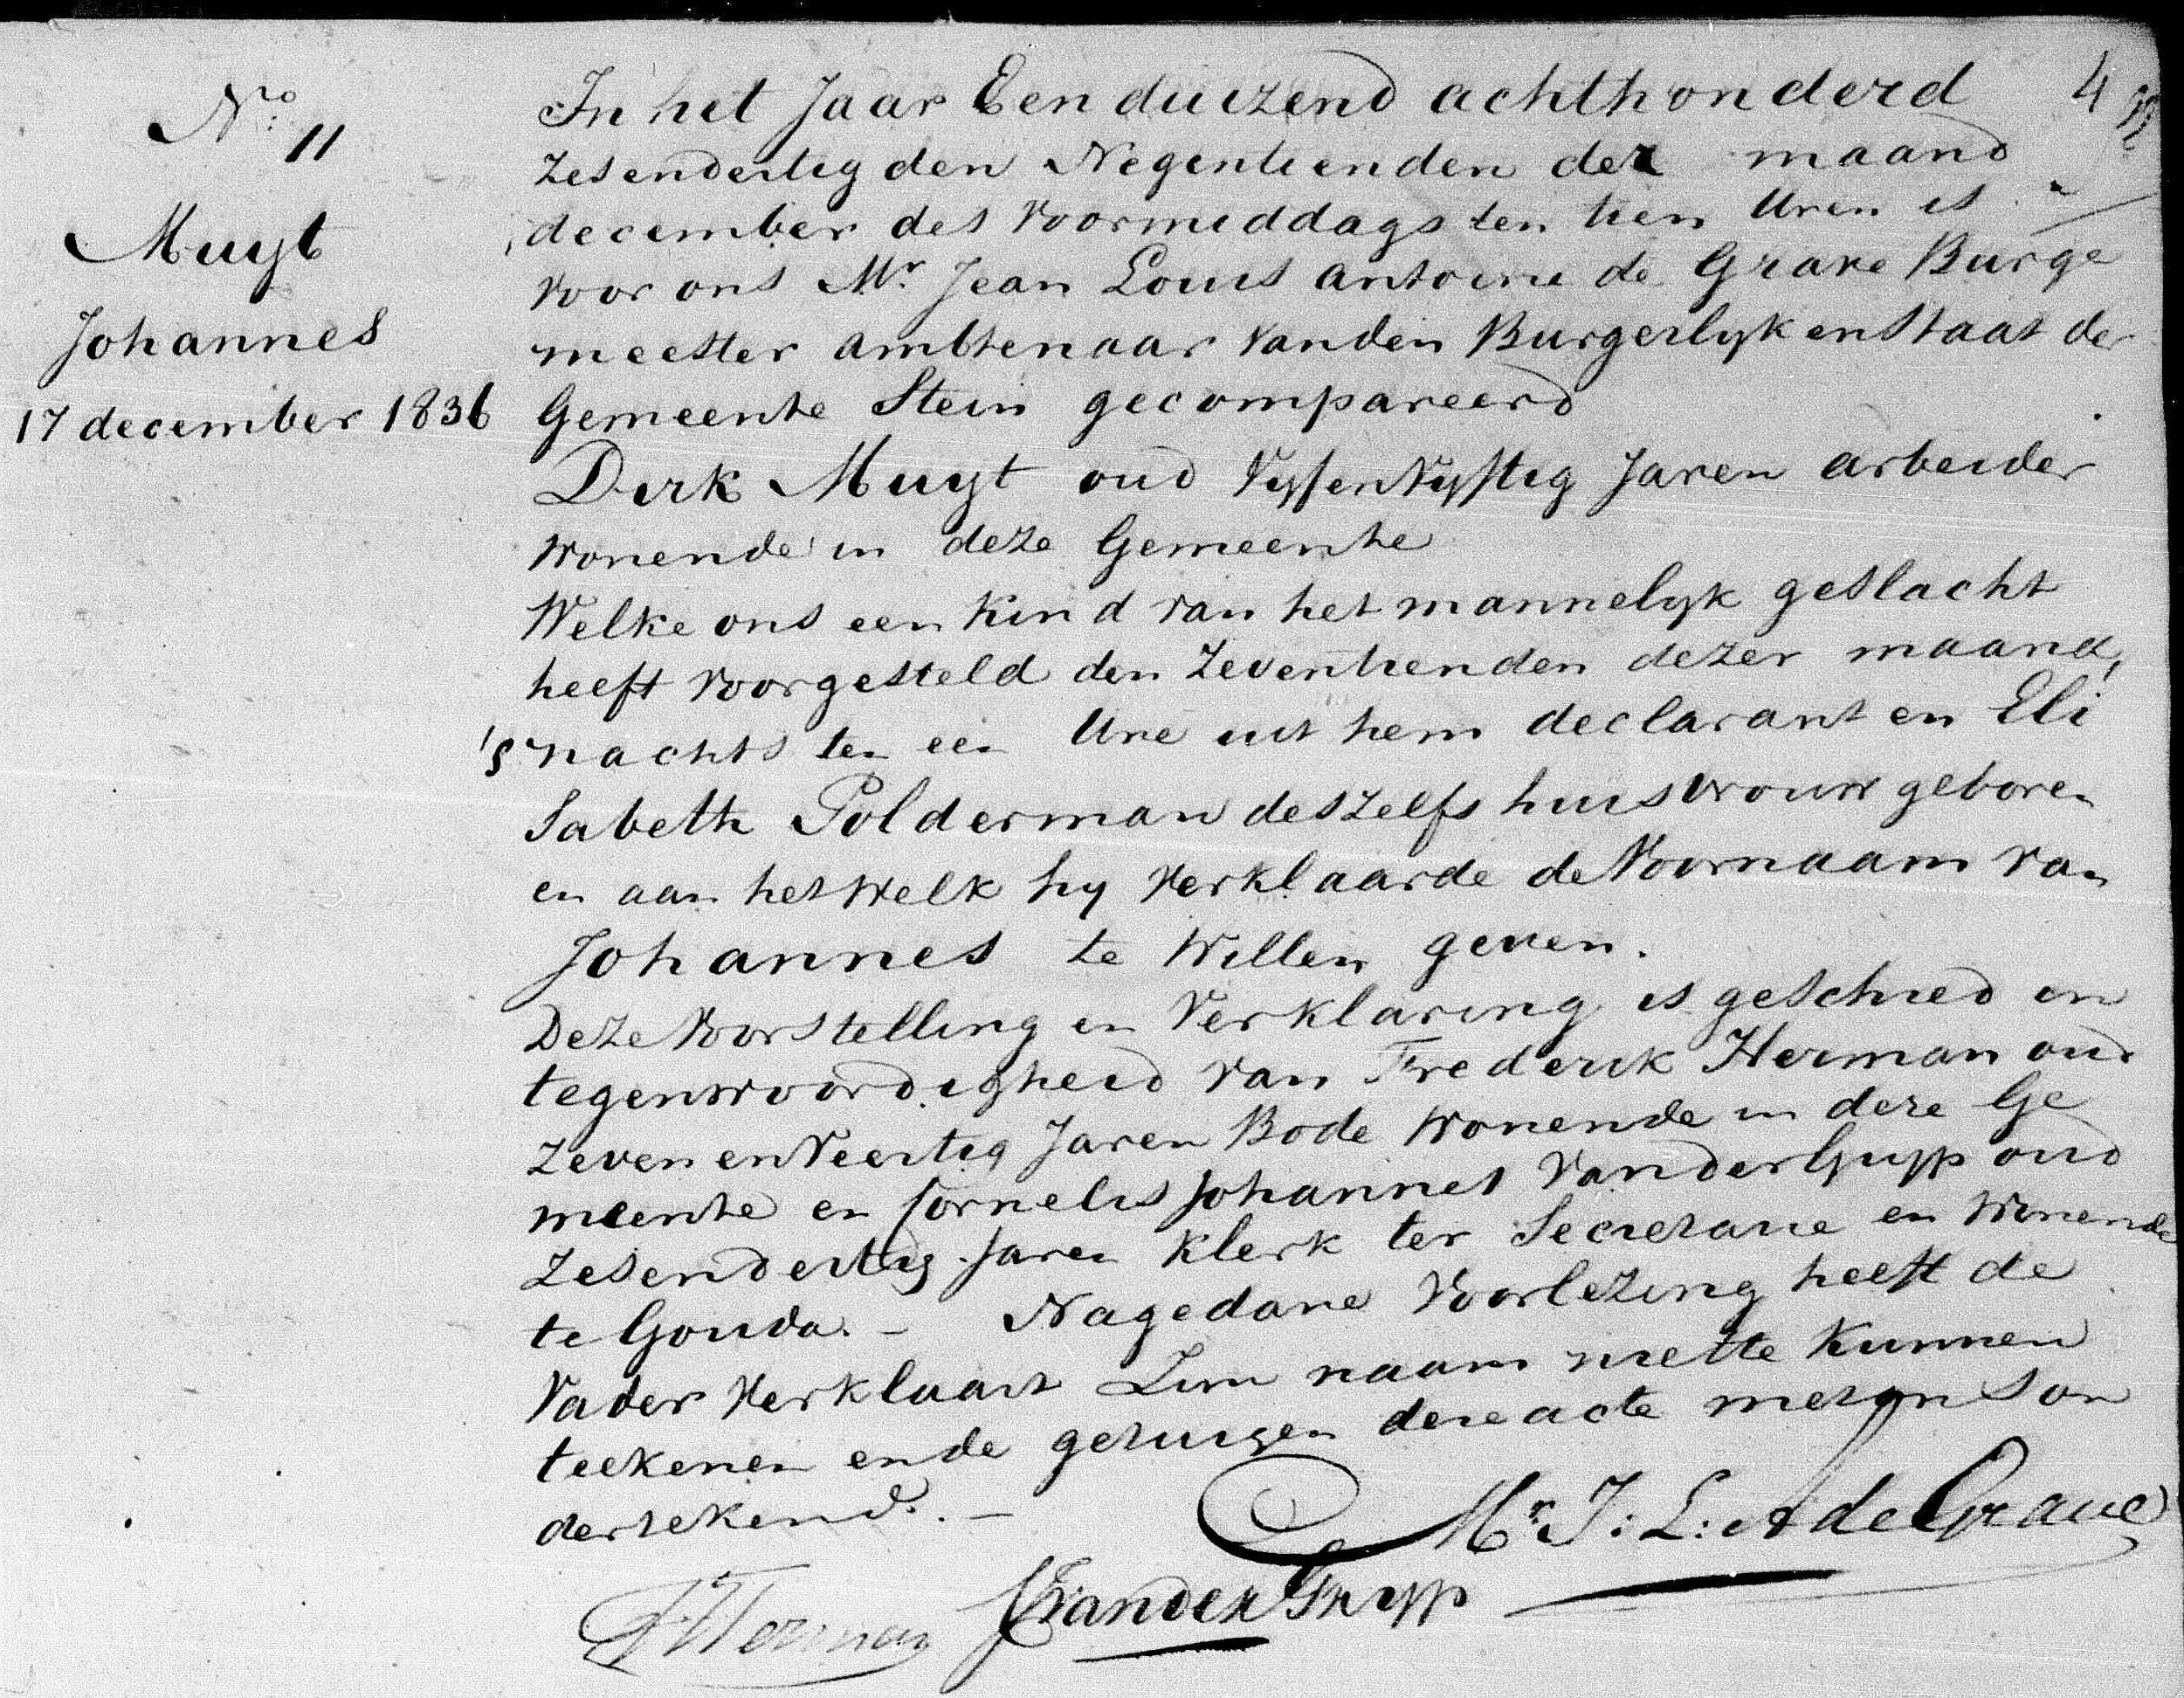 No. 11
Muyt
Johannes
17 december 1836
4
In het Jaar Een duizend achthonderd
zesendertig den Negentienden der maand
december des Voormiddags ten tien Uren is
voor ons Mr. Jean Louis Antoine de Grave Burge
meester ambtenaar van den Burgerlyken Staat der
Gemeente Stein gecompareerd
Dirk Muyt oud Vyfenvyftig Jaren arbeider
wonende in deze Gemeente
Welke ons een Kind van het mannelyk geslacht
heeft voorgesteld den Zeventienden dezer maand,
's nachts ten een Ure uit hem declarant en Eli
sabeth Polderman deszelfs huisvrouw geboren
en aan het welk hy verklaarde de Voornaam van
Johannes te Willen geven.
Deze Voorstelling en Verklaring is geschied in
tegenwoordigheid van Frederik Herman oud
zeven en Veertig Jaren Bode wonende in deze Ge
meente en Cornelis Johannes van der Gryp oud
zesendertig Jaren Klerk ter Secretarie en wonende
te Gouda. - Na gedane Voorlezing heeft de
Vader verklaart Zijn naam niet te Kunnen
teekenen en de getuigen deze acte met ons on
dertekend. -
Mr. J: L: A de Grave
F Herman CJ van der Gryp